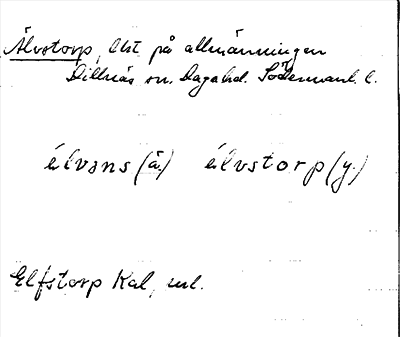 Älvstorp, lht på allmänningen
Dillnäs sn. Daga hd. Södermanl. l.
élvəns (ä.) élvstorp (y.)
Elfstorp Kal, ul.